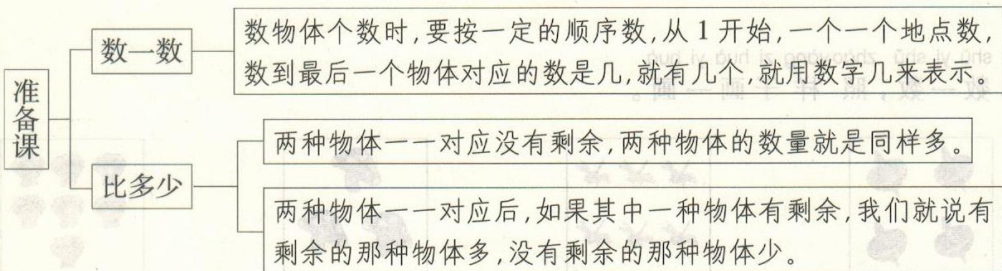 准备课
数一数
数物体个数时,要按一定的顺序数,从1开始,一个一个地点数,
数到最后一个物体对应的数是几,就有几个,就用数字几来表示。
比多少
两种物体一一对应没有剩余,两种物体的数量就是同样多。
两种物体一一对应后,如果其中一种物体有剩余,我们就说有
剩余的那种物体多,没有剩余的那种物体少。